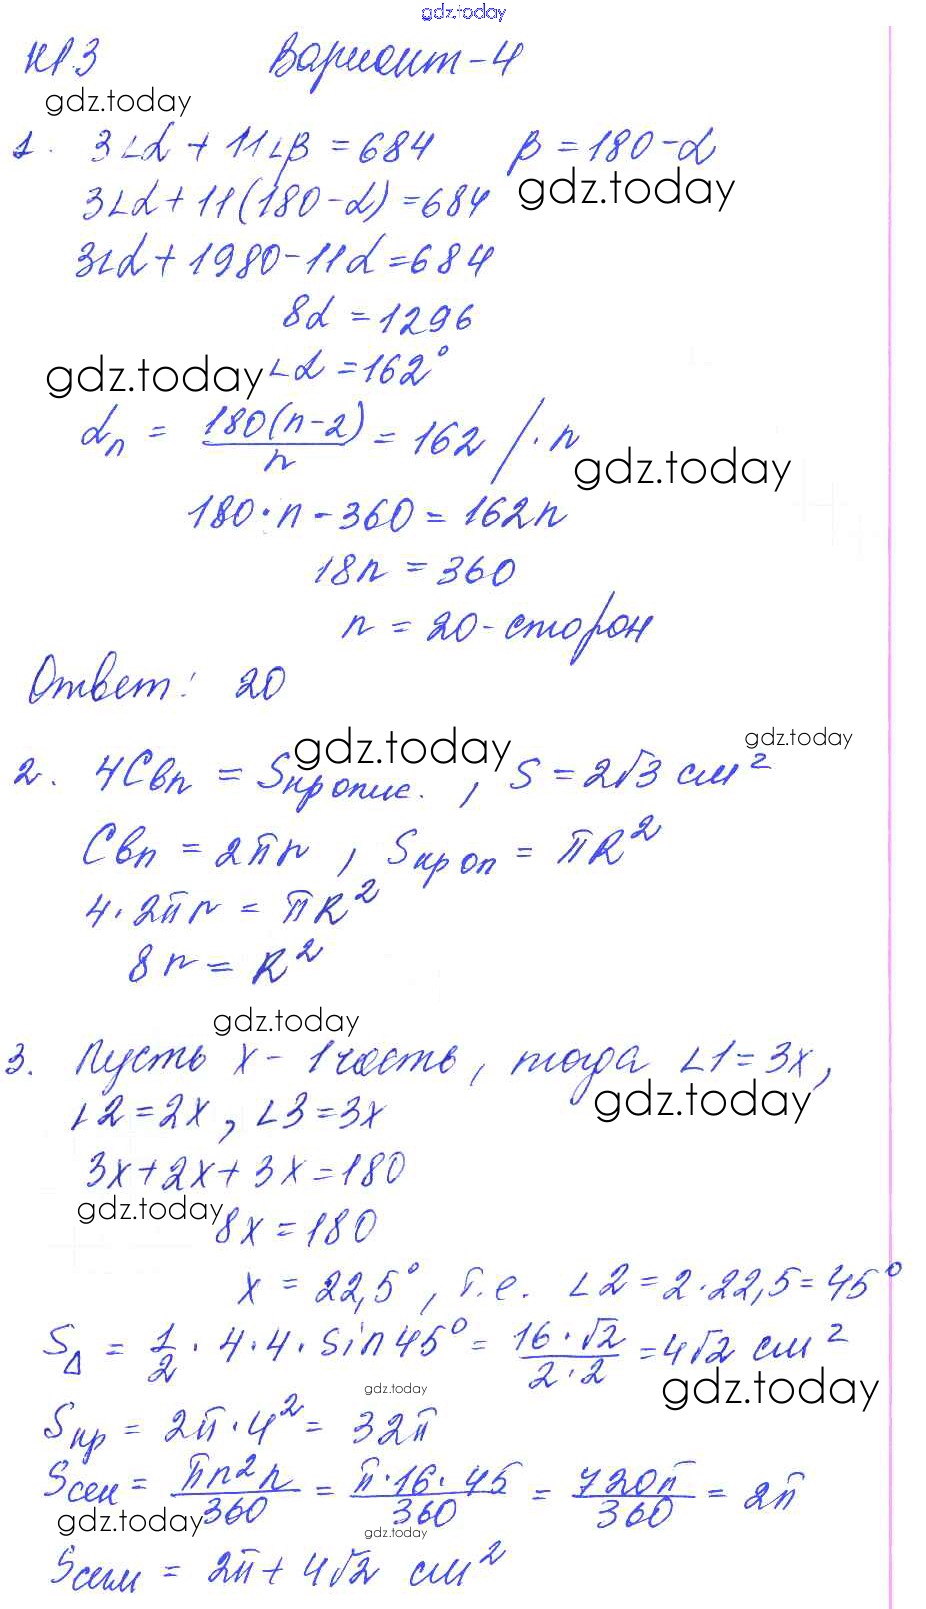 gdz.today
КР.3 Вариант-4
gdz.today
1. 3∠α + 11∠β = 684 β = 180-α
gdz.today
3∠α + 11(180-α) = 684
3∠α + 1980-11α = 684
8α = 1296
gdz.today ∠α = 162°
αn = 180(n-2)/n = 162 /·n
gdz.today
180·n - 360 = 162n
18n = 360
n = 20 - сторон
Ответ: 20
gdz.today gdz.today
2. 4Cвп = Sкропис., S = 2√3 см²
Cвп = 2πr, Sкроп = πR²
4·2πr = πR²
8r = R²
gdz.today
3. Пусть x - 1 часть, тогда ∠1 = 3x,
gdz.today
∠2 = 2x, ∠3 = 3x
3x + 2x + 3x = 180
gdz.today
8x = 180
x = 22,5°, т.е. ∠2 = 2·22,5 = 45°
S△ = 1/2 · 4·4· sin 45° = 16·√2/2·2 = 4√2 см²
gdz.today gdz.today
Sкр = 2π·4² = 32π
Sсек = πr²n/360 = π·16·45/360 = 720π/360 = 2π
gdz.today gdz.today
Sсегм = 2π + 4√2 см²